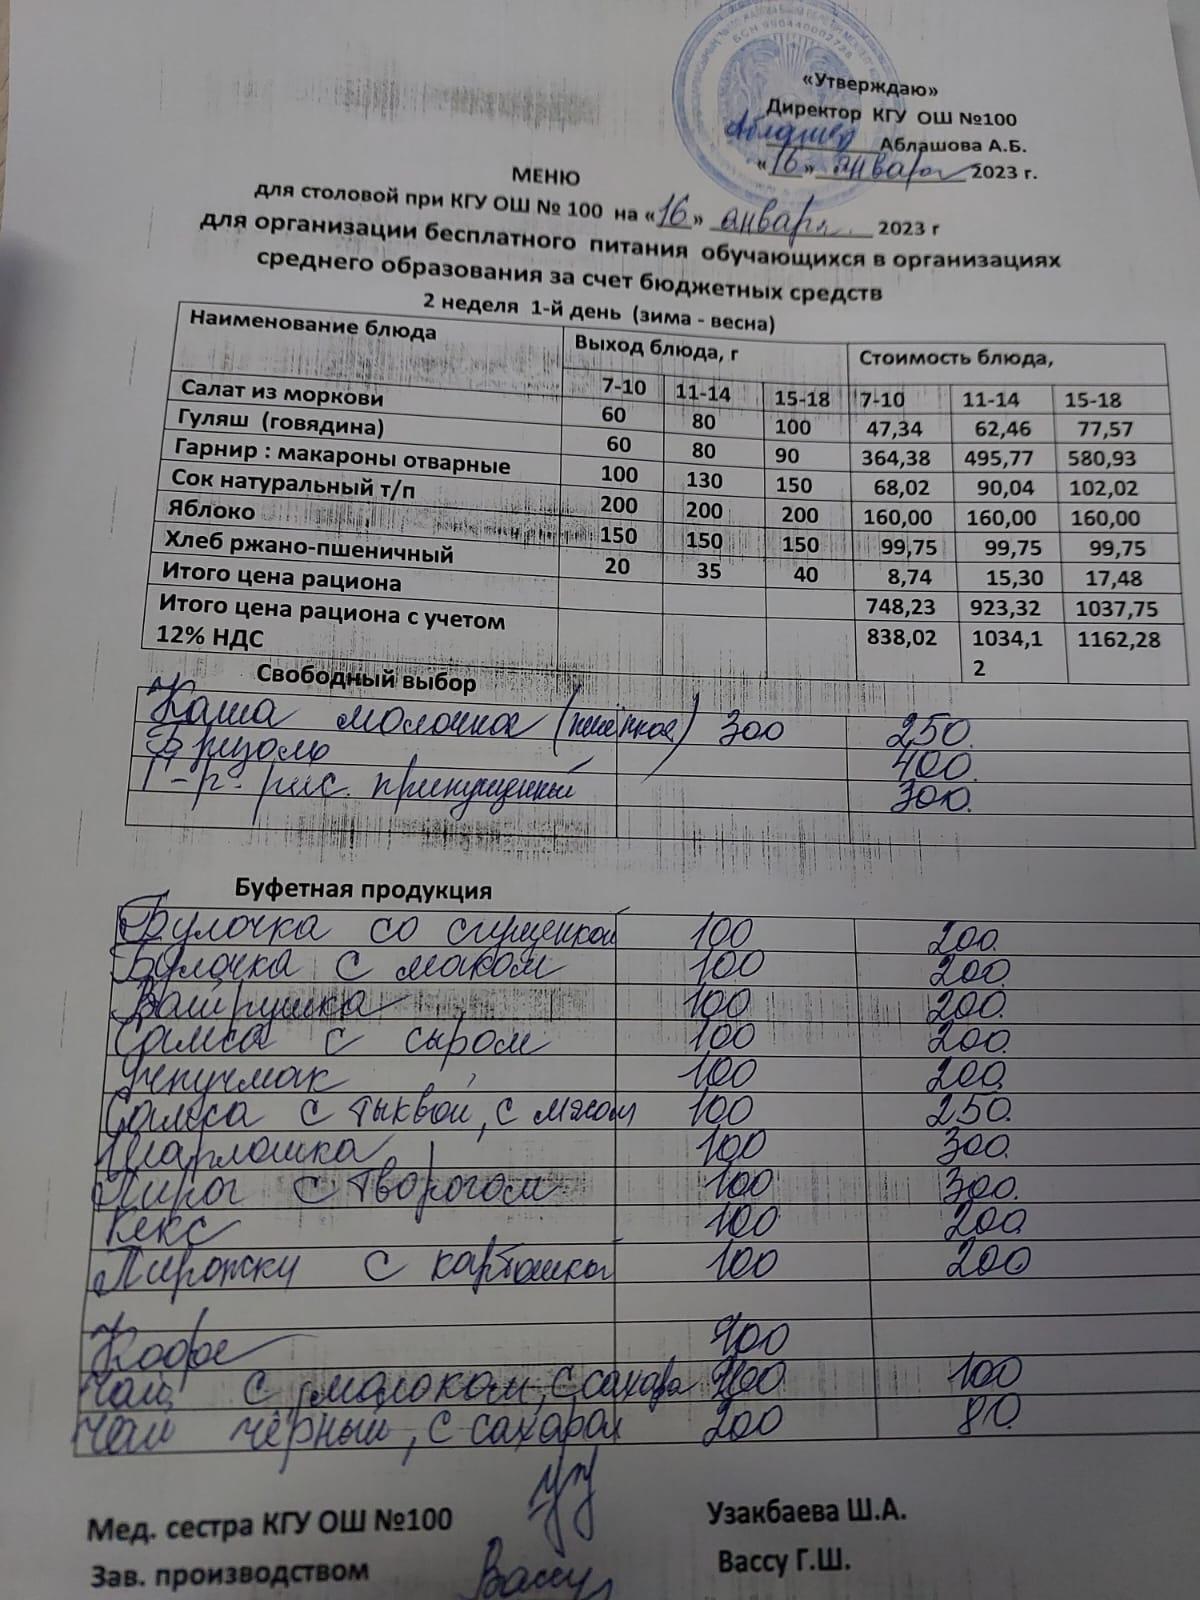 БСН 990440002728
«Утверждаю»
Директор КГУ ОШ №100
Аблашова А.Б.
«16» января 2023 г.
МЕНЮ
для столовой при КГУ ОШ № 100 на «16» января 2023 г
для организации бесплатного питания обучающихся в организациях
среднего образования за счет бюджетных средств
2 неделя 1-й день (зима - весна)
Наименование блюда Выход блюда, г Стоимость блюда,
7-10 11-14 15-18 7-10 11-14 15-18
Салат из моркови 60 80 100 47,34 62,46 77,57
Гуляш (говядина) 60 80 90 364,38 495,77 580,93
Гарнир : макароны отварные 100 130 150 68,02 90,04 102,02
Сок натуральный т/п 200 200 200 160,00 160,00 160,00
Яблоко 150 150 150 99,75 99,75 99,75
Хлеб ржано-пшеничный 20 35 40 8,74 15,30 17,48
Итого цена рациона 748,23 923,32 1037,75
Итого цена рациона с учетом 838,02 1034,1 1162,28
12% НДС 2
Свободный выбор
Каша молочное 300 250.
Бризоль 400.
Г-р. рис. припущенный 300.
Буфетная продукция
Булочка со сгущенкой 100 200.
Булочка с маком 100 200.
Ватрушка 100 200.
Самса с сыром 100 200.
Учпучмак 100 200.
Самса с тыквой, с мясом 100 250.
Шарлотка 100 300.
Пирог с творогом 100 300.
Кекс 100 200
Пирожки с картошкой 100 200
Кофе 200
Чай с молоком, с сахаром 200 100
Чай чёрный, с сахаром 200 80.
Мед. сестра КГУ ОШ №100 Узакбаева Ш.А.
Зав. производством Вассу Вассу Г.Ш.